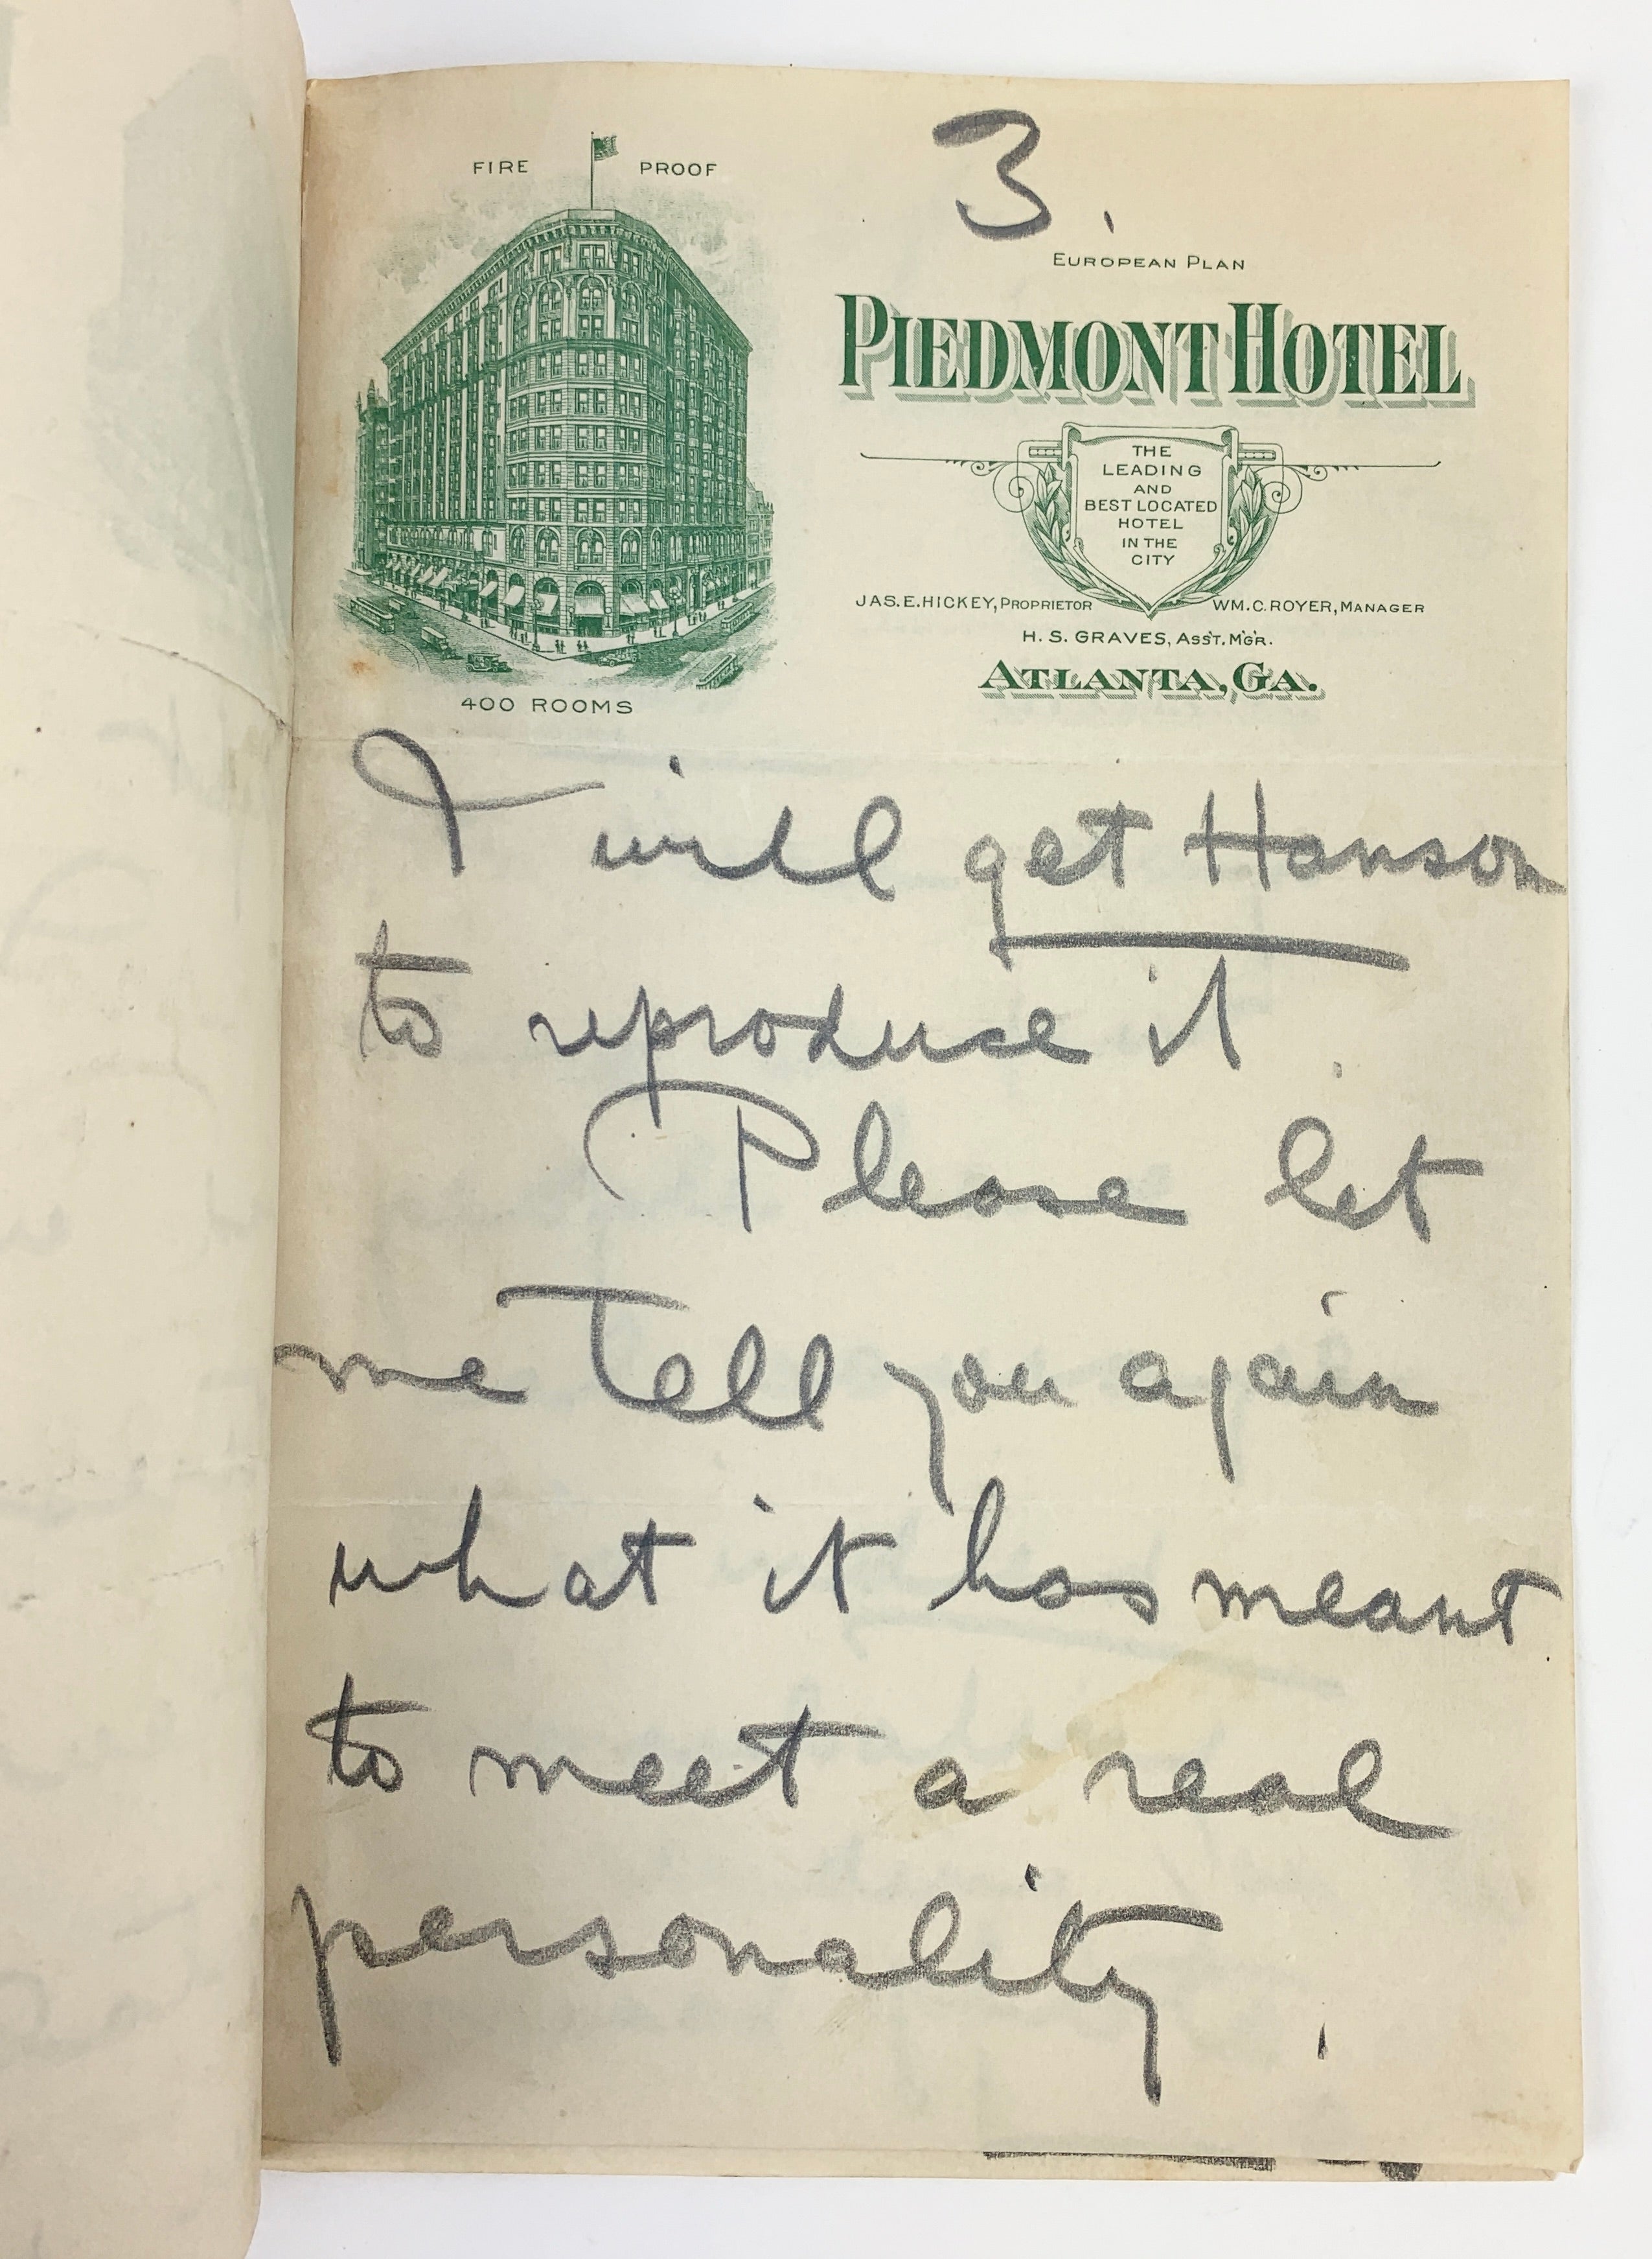 3.
FIRE PROOF
EUROPEAN PLAN
PIEDMONT HOTEL
THE
LEADING
AND
BEST LOCATED
HOTEL
IN THE
CITY
JAS. E. HICKEY, PROPRIETOR WM. C. ROYER, MANAGER
H. S. GRAVES, ASS'T. M'G'R.
ATLANTA, GA.
400 ROOMS
I will get Hanson
to reproduce it.
Please let
me tell you again
what it has meant
to meet a real
personality.